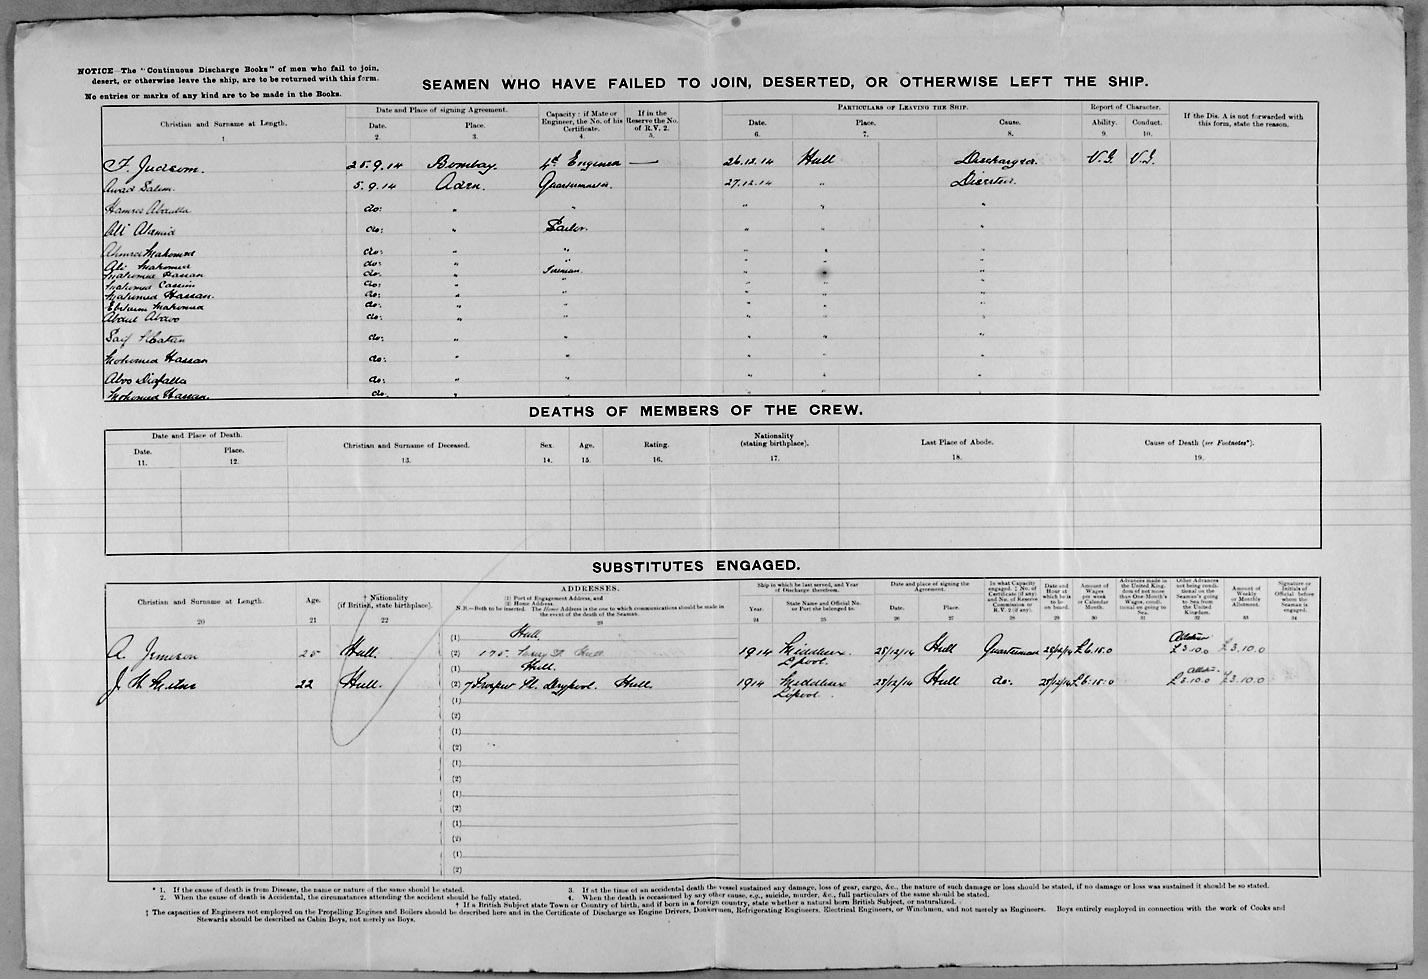 NOTICE The "Continuous Discharge Books" of men who fail to join,
desert, or otherwise leave the ship, are to be returned with this form.
No entries or marks of any kind are to be made in the Books.
SEAMEN WHO HAVE FAILED TO JOIN, DESERTED, OR OTHERWISE LEFT THE SHIP.
Christian and Surname at Length. 1
Date and Place of signing Agreement.
Date. 2
Place. 3.
Capacity: if Mate or Engineer, the No. of his Certificate. 4.
If in the Reserve the No. of R.V. 2. 5.
PARTICULARS OF LEAVING THE SHIP.
Date. 6.
Place. 7.
Cause. 8.
Report of Character.
Ability. 9.
Conduct. 10.
If the Dis. A is not forwarded with this form, state the reason.
F. Judsom. 25.9.14 Bombay. 4th Engineer — 26.12.14 Hull Discharged. V.G. V.G.
Awad Salem. 5.9.14 Aden. Quartermaster. 27.12.14 " Deserted.
Abdulla do: " " " " "
Ali do: " Sailor. " " "
Ahmed Mahomed do: " " " " "
Ali Mahomed do: " " " " "
Mahomed Hassan do. " Fireman. " "
Mahomed Cassim do: " " " " "
Mahomed Hassan. do: " " " " "
Mahomed do: " " " " "
Abdul do: " " " " "
Saif do: " " " " "
Mohomed Hassan do: " " " " "
Abdo do: " " " " "
Mohomed Hassan. do. " " " "
DEATHS OF MEMBERS OF THE CREW.
Date and Place of Death.
Date. 11.
Place. 12.
Christian and Surname of Deceased. 13.
Sex. 14.
Age. 15.
Rating. 16.
Nationality (stating birthplace). 17.
Last Place of Abode. 18.
Cause of Death (see Footnotes*). 19.
SUBSTITUTES ENGAGED.
Christian and Surname at Length. 20
Age. 21
† Nationality (if British, state birthplace). 22
ADDRESSES.
(1) Port of Engagement Address, and
(2) Home Address.
N.B.—Both to be inserted. The Home Address is the one to which communications should be made in
the event of the death of the Seaman.
23
Ship in which he last served, and Year of Discharge therefrom.
Year. 24
State Name and Official No. or Port she belonged to. 25
Date and place of signing the Agreement.
Date. 26
Place. 27
In what Capacity engaged. ‡ No. of Certificate (if any) and No. of Reserve Commission or R.V. 2 (if any). 28
Date and Hour at which he is to be on board. 29
Amount of Wages per week or Calendar Month. 30
Advances made in the United Kingdom of not more than One Month's Wages, conditional on going to Sea. 31
Other Advances not being conditional on the Seaman's going to Sea from the United Kingdom. 32
Amount of Weekly or Monthly Allotment. 33
Signature or Initials of Official before whom the Seaman is engaged. 34
(1) Hull.
A. Jemeson 25 Hull. (2) 175. Hull 1914 Middlesex L'pool. 28/12/14 Hull Quartermaster 28/12/14 £6.15.0 £3.10.0 £3.10.0
(1) Hull.
J. H. 22 Hull. (2) 7 Prospect Pl. Drypool. Hull. 1914 Middlesex L'pool. 28/12/14 Hull do. 28/12/14 £6:15:0 £3.10.0 £3.10.0
(1)
(2)
(1)
(2)
(1)
(2)
(1)
(2)
(1)
(2)
(1)
(2)
* 1. If the cause of death is from Disease, the name or nature of the same should be stated.
2. When the cause of death is Accidental, the circumstances attending the accident should be fully stated.
3. If at the time of an accidental death the vessel sustained any damage, loss of gear, cargo, &c., the nature of such damage or loss should be stated, if no damage or loss was sustained it should be so stated.
4. When the death is occasioned by any other cause, e.g., suicide, murder, &c., full particulars of the same should be stated.
† If a British Subject state Town or Country of birth, and if born in a foreign country, state whether a natural born British Subject, or naturalized.
‡ The capacities of Engineers not employed on the Propelling Engines and Boilers should be described here and in the Certificate of Discharge as Engine Drivers, Donkeymen, Refrigerating Engineers, Electrical Engineers, or Winchmen, and not merely as Engineers. Boys entirely employed in connection with the work of Cooks and
Stewards should be described as Cabin Boys, not merely as Boys.